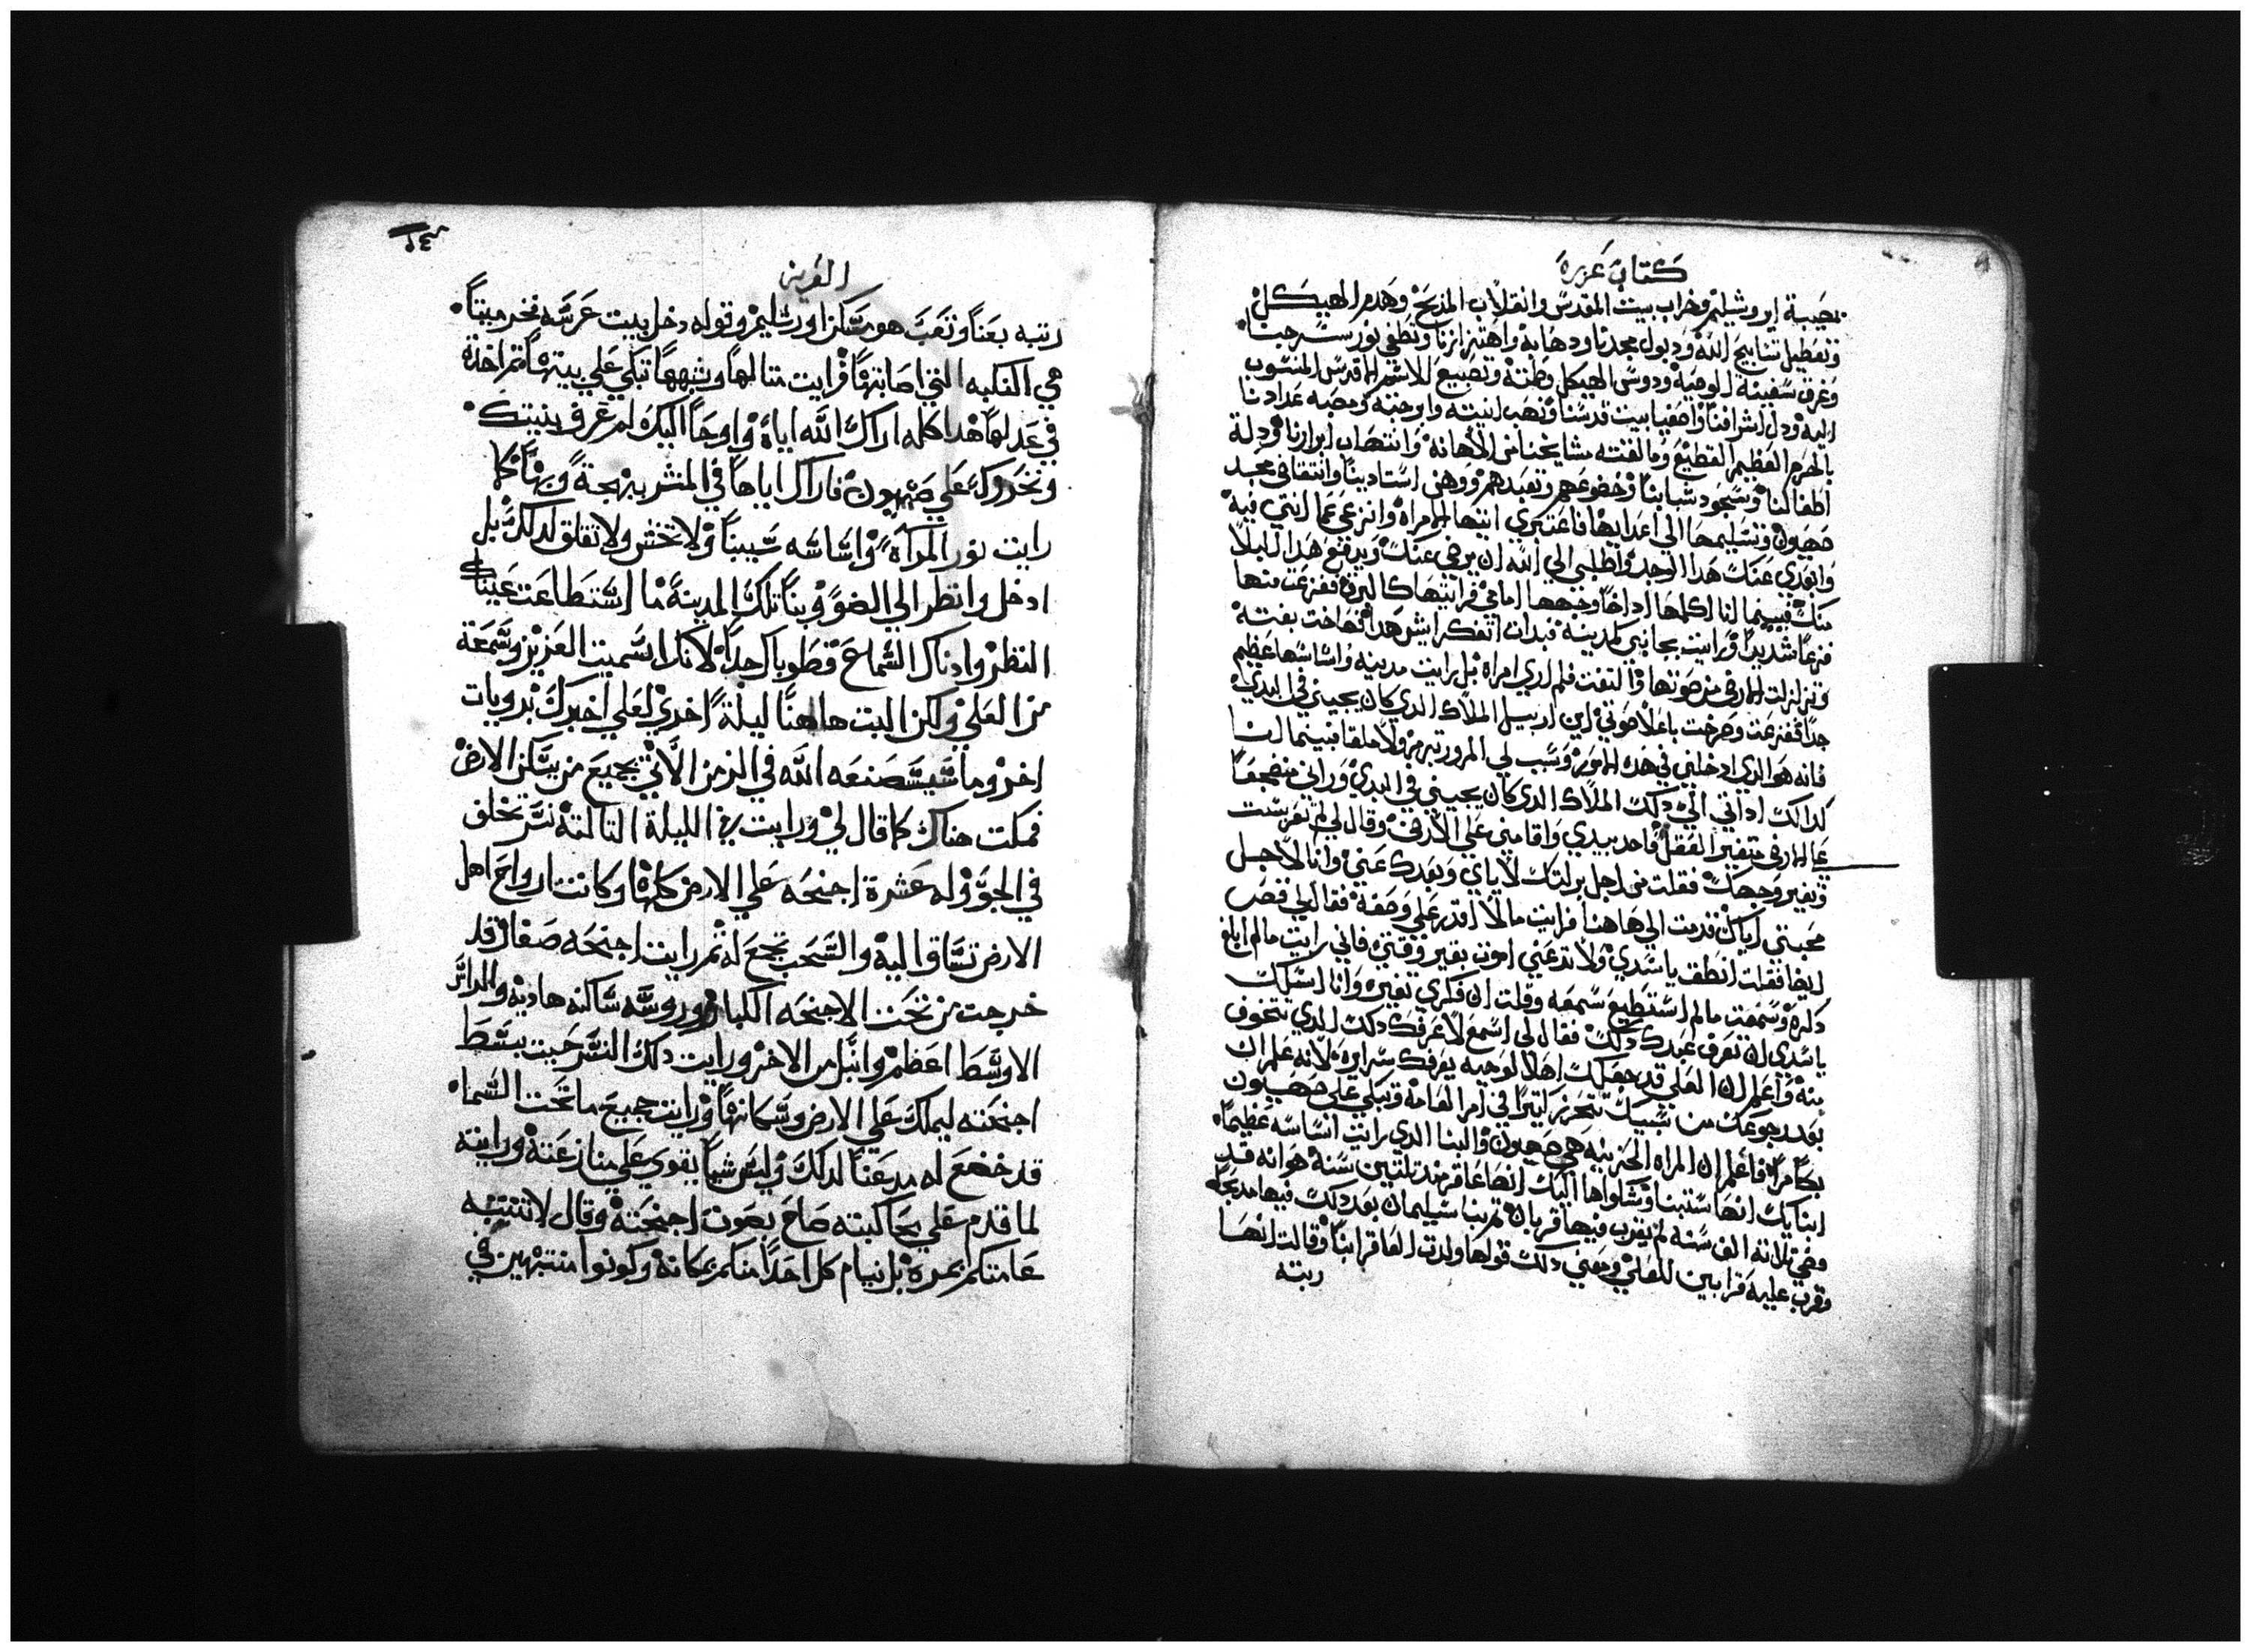 كتاب عزره
بمصيبة ايروشيليم وخراب بيت المقدس وانقلاب المذبح وهدم الهيكل
وتعطيل تسابيح الله ودبول مجدنا ودهابه واهتزازنا وتطفي نور سرجنا
وغرق سفينة الوحية ودوس الهيكل وطمته وتضييع للاسم المقدس المنسوب
اليه ودل اشرافنا واصفيا بيت قدسنا ونهب انيته وابرجته ومضيه
بالحرم العظيم الفظيع وما لقيته مشايخنا من الاهانة وانتهاب ابرارنا ودلة
اطفالنا وسجود شبابنا وخضوعهم وتعبدهم ووهن استادينا وانتقاض مجد
صهيون وتسليمها الي اعدايها فاعتبري ايتها الامراه وانزعي عما انتي فيه
وابعدي عنك هدا الوجد واطلبي الي الله ان يرضي عنك ويرفع هدا البلا
منك فبينما انا اكلمها اد اضا وجهها امامي فرايتها كالبرق ففزعت منها
فزعا شديدا ورايت بجانبي كمدينه فبدات اتفكر ايش هدا فصاحت بغتة
وتزلزلت الارض من صوتها والتفت فلم اري امراه بل رايت مدينه واساسها عظيم
جدا ففزعت وصرخت باعلا صوتي اين ارييل الملاك الدي كان يجيني في البدي
فانه هو الدي ادخلني في هده الامور وسبب لي المرور فبينما انا
كدالك اد اتي الي دلك الملاك الدي كان يجيني في البدي وراني منضجعا
علي الارض متغير العقل فاخد بيدي واقامني علي الارض وقال لي لم تفرست
وتغير وجهك فقلت من اجل تركك لاياي وبعدك عني وانا لاجل
محبتي اياك قدمت الي هاهنا فرايت مالا اقدر علي وصفه فقال لي قص
ايضا فقلت انطق ياسدي ولا تدعني اموت بغير وقتي فاني رايت مالم ابلغ
دكره وسمعت مالم استطيع سمعه وقلت ان فكري تغيره وانا اسلك
ياسيدي ان تعرف عبدك دلك فقال لي اسمع لاعرفك دلك الدي تتخوف
منه واعلم ان العلي قد جعلك اهلا لوحيه يعرفك سرايره لانه علم ان
بعد رجوعك من سبيك تتحرز كتيرا في امر العامة وتبكي علي صهيون
بكا مرا فاعلم ان المراه الحزينه هي صهيون والبنا الدي رايت اساسه عظيما
ابنايك انها ستبنا وشكواها اليك انها عاقر مند تلتين سنة هو انه قد
مضي تلاتة الف سنه لم يقرب فيها قربان تم بنا سليمان بعد دلك فيها مدبحا
وقرب عليه قرابين للعلي ومعني دلك قولها ولدت العاقر ابنا وقالت انها
ربته
الفرين
ربته بعنا وتعب هو مسكن اورشليم وقوله دخل بيت عرسه فخر ميتا
هي النكبه التي اصابتها فرايت متالها وشبهها تبكي علي بيتها تم اخدة
في عدلها هدا كله اراك الله اياة واوحا اليك لم عرف بنيتك
وتخروك علي صهيون فاراك اياها في المنشر بهجة وبها كما
رايت نور المرآة واساسه سيبنا ولا تخش ولا تقلق لدلك بل
ادخل وانظر الي الضو وبنا تلك المدينة ما استطاعت عيناك
النظر وادناك السماع فطوباك جدا لانك اسميت العزيز وسمعة
من العلي ولكن البت هاهنا ليلة اخري لعلي اخبرك برويات
اخر وما سيصنعه الله في الزمن الاتي بجميع من يسكن الارض
فمكت هناك كما قال لي ورايت في الليلة التالته نسر تحلق
في الجو وله عشرة اجنحه علي الارض كلها وكانت ارواح اهل
الارض تساق اليه والسحب تجمع له تم رايت اجنحه صغار قد
خرجت من تحت الاجنحه الكبار وروسه ساكنه هاديه والراس
الاوسط اعظم وانبل من الاخر ورايت دلك النسر حيت بسط
اجنحته ليملك علي الارض وسكانها ورايت جميع ما تحت السما
قد خضع له مدعنا لدلك وليس شيا يقوي علي منازعته ورايته
لما قدم علي مخاكبته صاح بصوت اجنحته وقال لا تنتبه
عامتكم بمره بل نيام كل احدا منكم بمكانه وكونوا منتبهين في